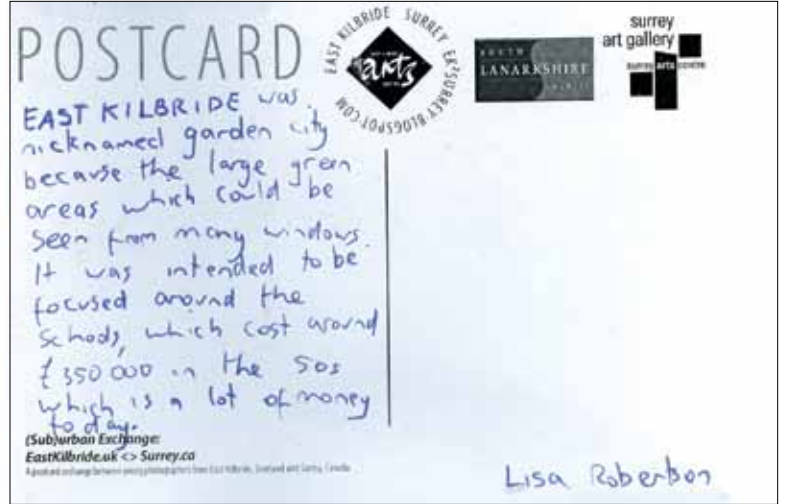 POSTCARD
EAST KILBRIDE SURREY EK2SURREY.BLOGSPOT.COM
arts
SOUTH
LANARKSHIRE
surrey
art gallery
surrey arts centre
EAST KILBRIDE was
nicknamed garden city
because the large green
areas which could be
seen from many windows.
It was intended to be
focused around the
schools, which cost around
£350 000 in the 50s
which is a lot of money
today.
(Sub)urban Exchange:
EastKilbride.uk <> Surrey.ca
A postcard exchange between young photographers from East Kilbride, Scotland and Surrey, Canada
Lisa Robertson